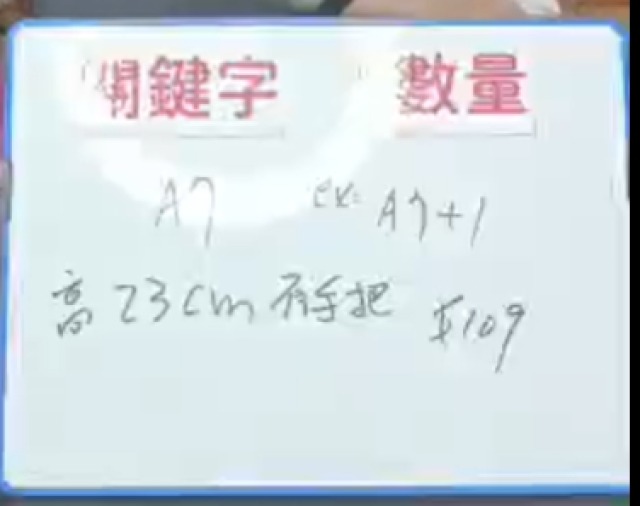 關鍵字 數量
A7 ex: A7+1
高23cm 有手把 $109